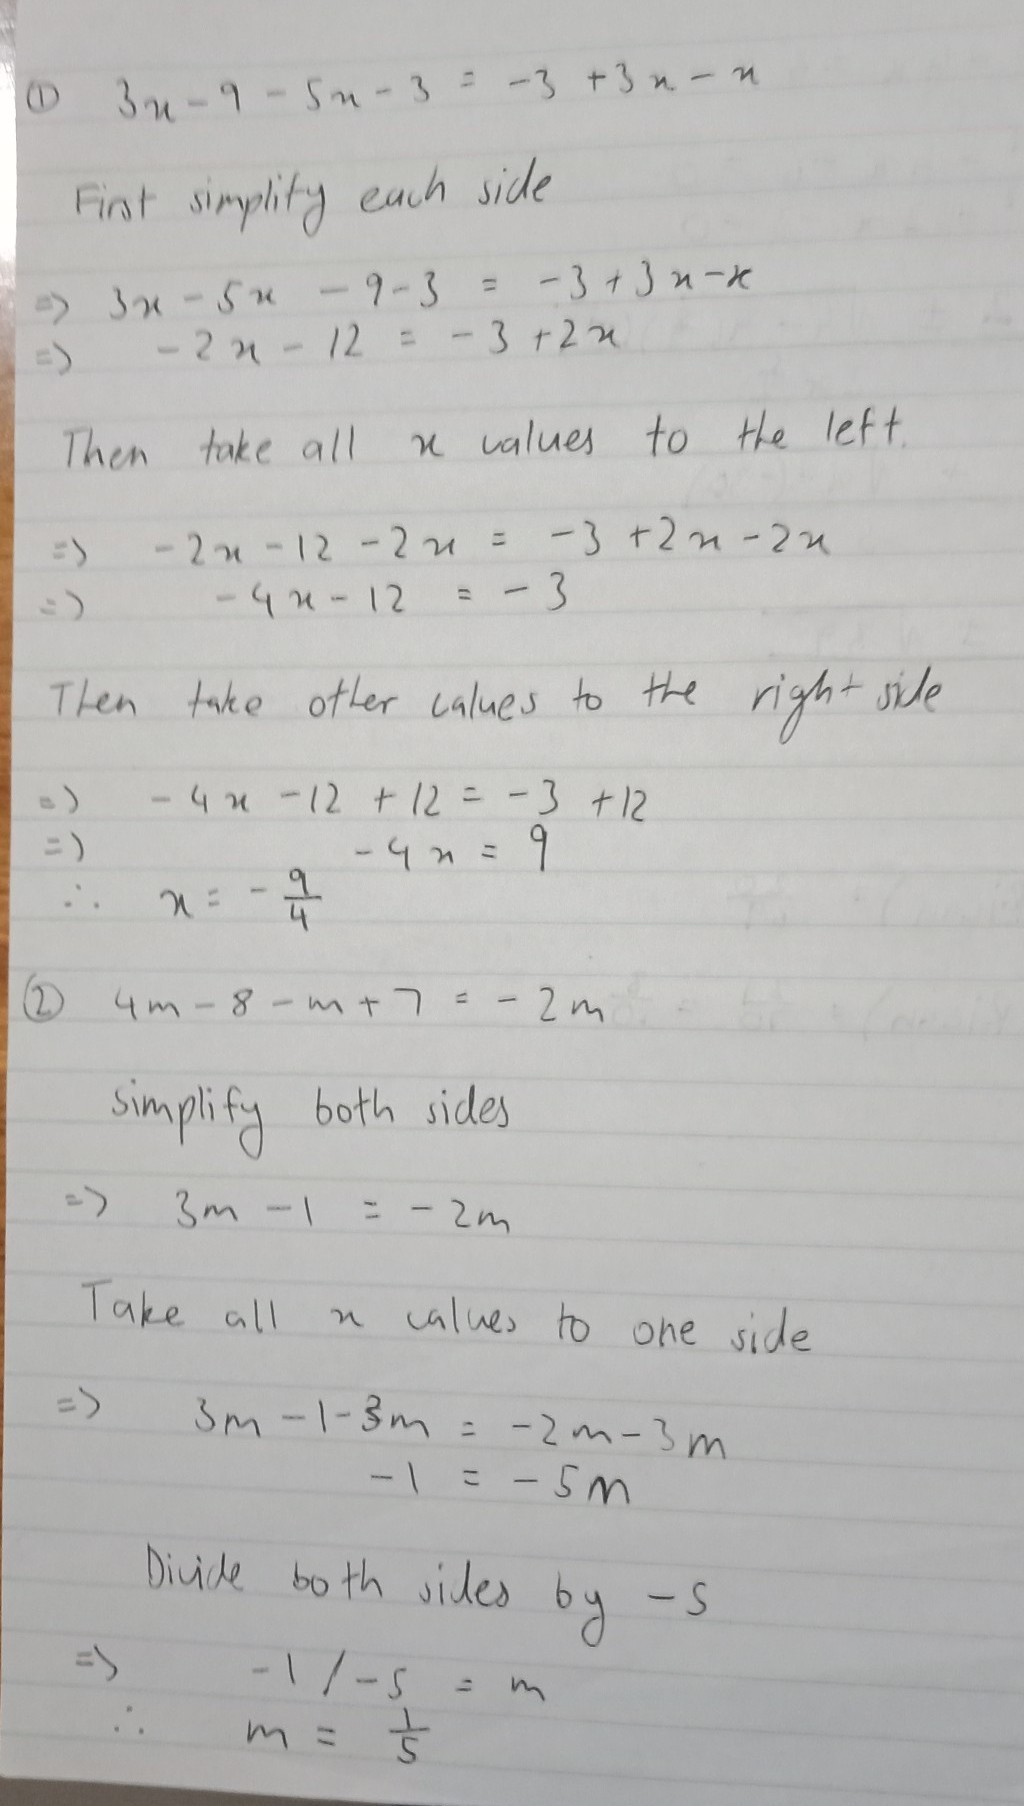 ① 3x - 9 - 5x - 3 = -3 + 3x - x
First simplify each side
=> 3x - 5x - 9 - 3 = -3 + 3x - x
=> -2x - 12 = -3 + 2x
Then take all x values to the left.
=> -2x - 12 - 2x = -3 + 2x - 2x
=> -4x - 12 = -3
Then take other values to the right side
=> -4x - 12 + 12 = -3 + 12
=> -4x = 9
∴ x = -9/4
② 4m - 8 - m + 7 = -2m
simplify both sides
=> 3m - 1 = -2m
Take all x values to one side
=> 3m - 1 - 3m = -2m - 3m
-1 = -5m
Divide both sides by -5
=> -1 / -5 = m
∴ m = 1/5